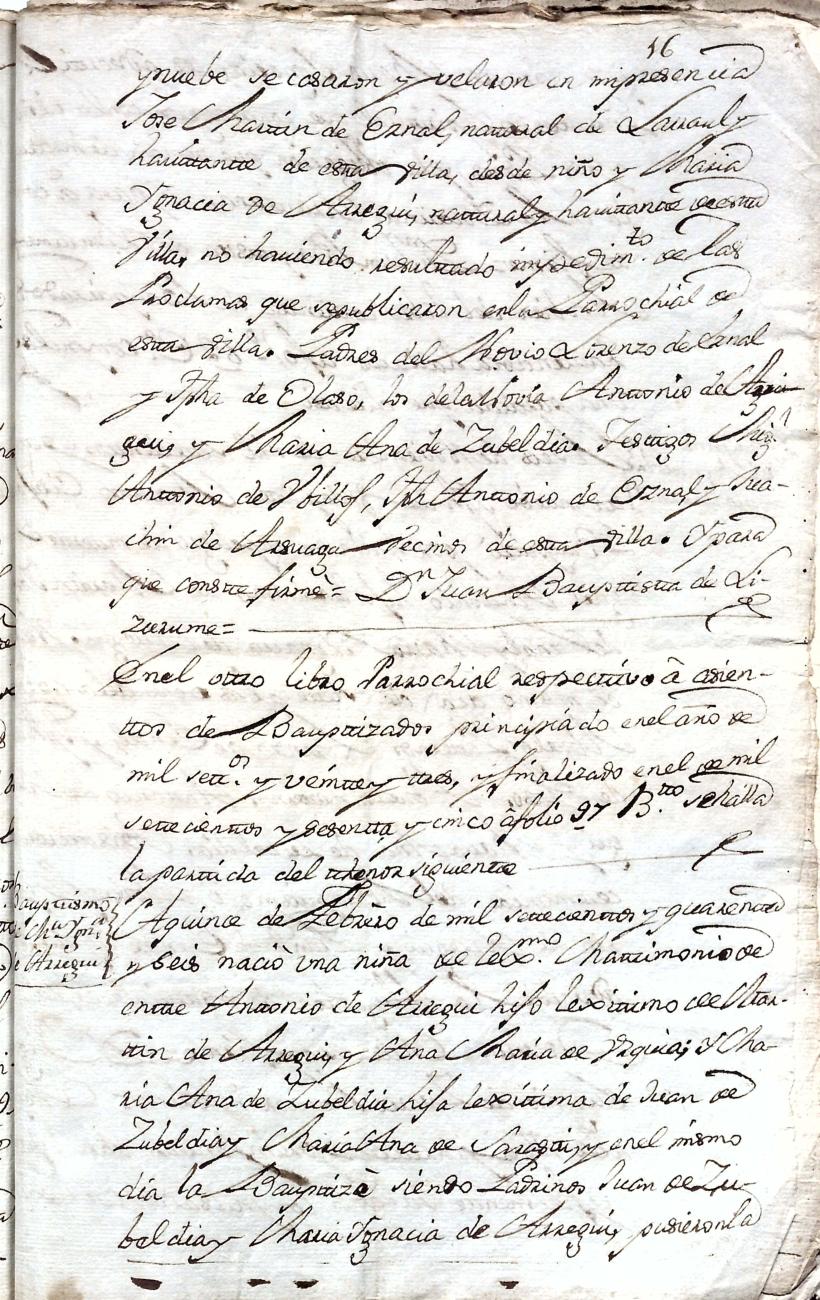 16
ynuebe se casaron y velaron en mi presencia
Jose Martin de Eznal, natural de Larraul y
havitante de esta villa, desde niño y Maria
Ygnacia de Arregui, natural y havitante de esta
Villa, no haviendo resultado impedim.to de las
Proclamas que sepublicaron enla Parrochial de
esta villa. Padres del Novio Lorenzo de Eznal
y Jpha de Olaso, los dela Novia Antonio de Arre-
gui, y Maria Ana de Zubeldia. Testigos
Antonio de Jph Antonio de Eznal, y Jua-
chin de Arsuaga Vecinos de esta villa. Y para
que conste firmè = Dn Juan Bauptista de Li-
zurume =
Enel otro libro Parrochial respectivo à asien-
ttos de Bauptizados principiado enel año de
mil sett.os y veinte y tres, y finalizado enel de mil
settecienttos y sesentta y cinco à folio 97 B.tto se halla
la partida del thenor siguiente
Bauptismo
Ma Ygna
Arregui
A quince de Febrero de mil settecienttos y quarenta
y seis naciò una niña de Lexmo. Mattrimonio de
entre Antonio de Arregui hijo lexitimo de Mar-
tin de Arregui, y Ana Maria de Urquia; y Ma-
ria Ana de Zubeldia hija lexitima de Juan de
Zubeldia y Maria Ana de Sarasti, y enel mismo
dia la Bauptizè siendo Padrinos Juan de Zu-
beldia y Maria Ygnacia de Arregui, pusieronla